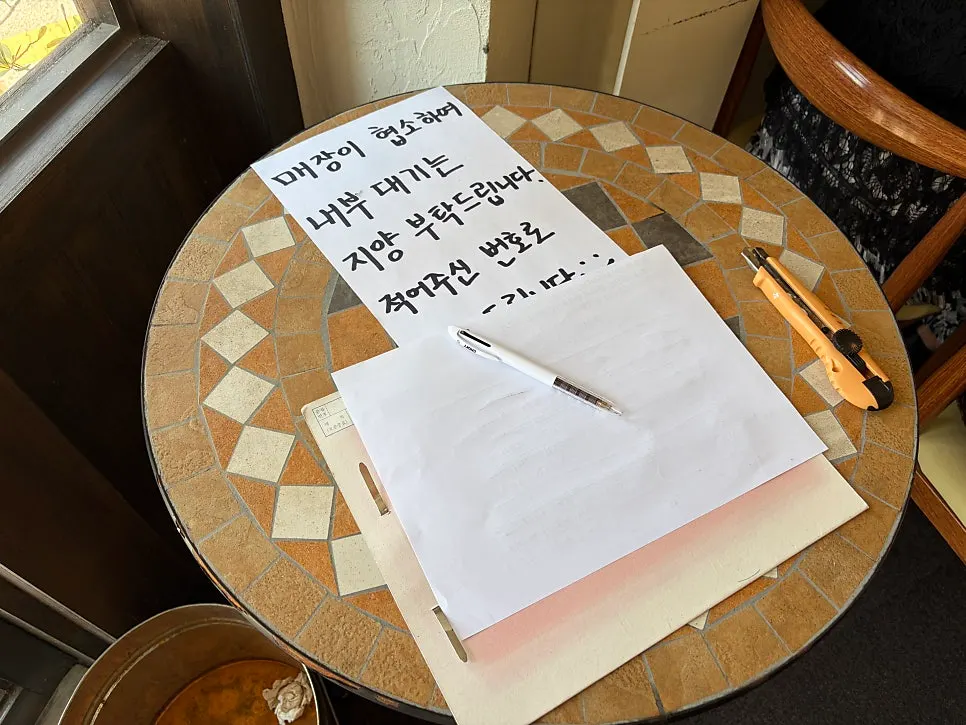 매장이 협소하여
내부 대기는
지양 부탁드립니다.
적어주신 번호로